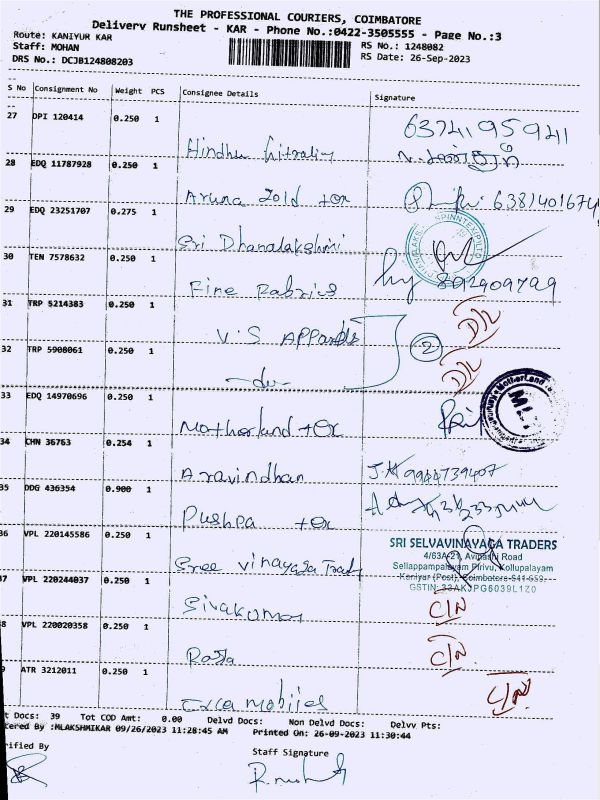 THE PROFESSIONAL COURIERS, COIMBATORE
Delivery Runsheet - KAR - Phone No.:0422-3505555 - Page No.:3
Route: KANIYUR KAR
RS No.: 1248082
Staff: MOHAN
RS Date: 26-Sep-2023
DRS No.: DCJB124808203
S No Consignment No Weight PCS Consignee Details Signature
27 DPI 120414 0.250 1
Hindhu 6374195941
28 EDQ 11787928 0.250 1
Aruna tex 6381401674
29 EDQ 23251707 0.275 1
Sri Dhanalakshmi
30 TEN 7578632 0.250 1
Fine Fabrics
31 TRP 5214383 0.250 1
V.S APParels D/L
2
32 TRP 5908061 0.250 1
-do- D/L
33 EDQ 14970696 0.250 1
Motherland tex
34 CHN 36763 0.254 1
Aravindhan 9944739407
35 DDG 436354 0.900 1
Pushpa tex
36 VPL 220145586 0.250 1
Sree Vinayaga Trad
SRI SELVAVINAYAGA TRADERS
4/63A-21, Avinashi Road
Sellappampalayam Pirivu, Kollupalayam
Kaniyur (Post), Coimbatore-641 659.
GSTIN: 33AKJPG6039L1Z0
37 VPL 220244037 0.250 1
Sivakumar C/N
38 VPL 220020358 0.250 1
Raja C/N
39 ATR 3212011 0.250 1
mobiles C/N
t Docs: 39 Tot COD Amt: 0.00 Delvd Docs: Non Delvd Docs: Delvv Pts:
tered By :MLAKSHMIKAR 09/26/2023 11:28:45 AM Printed On: 26-09-2023 11:30:44
rified By Staff Signature